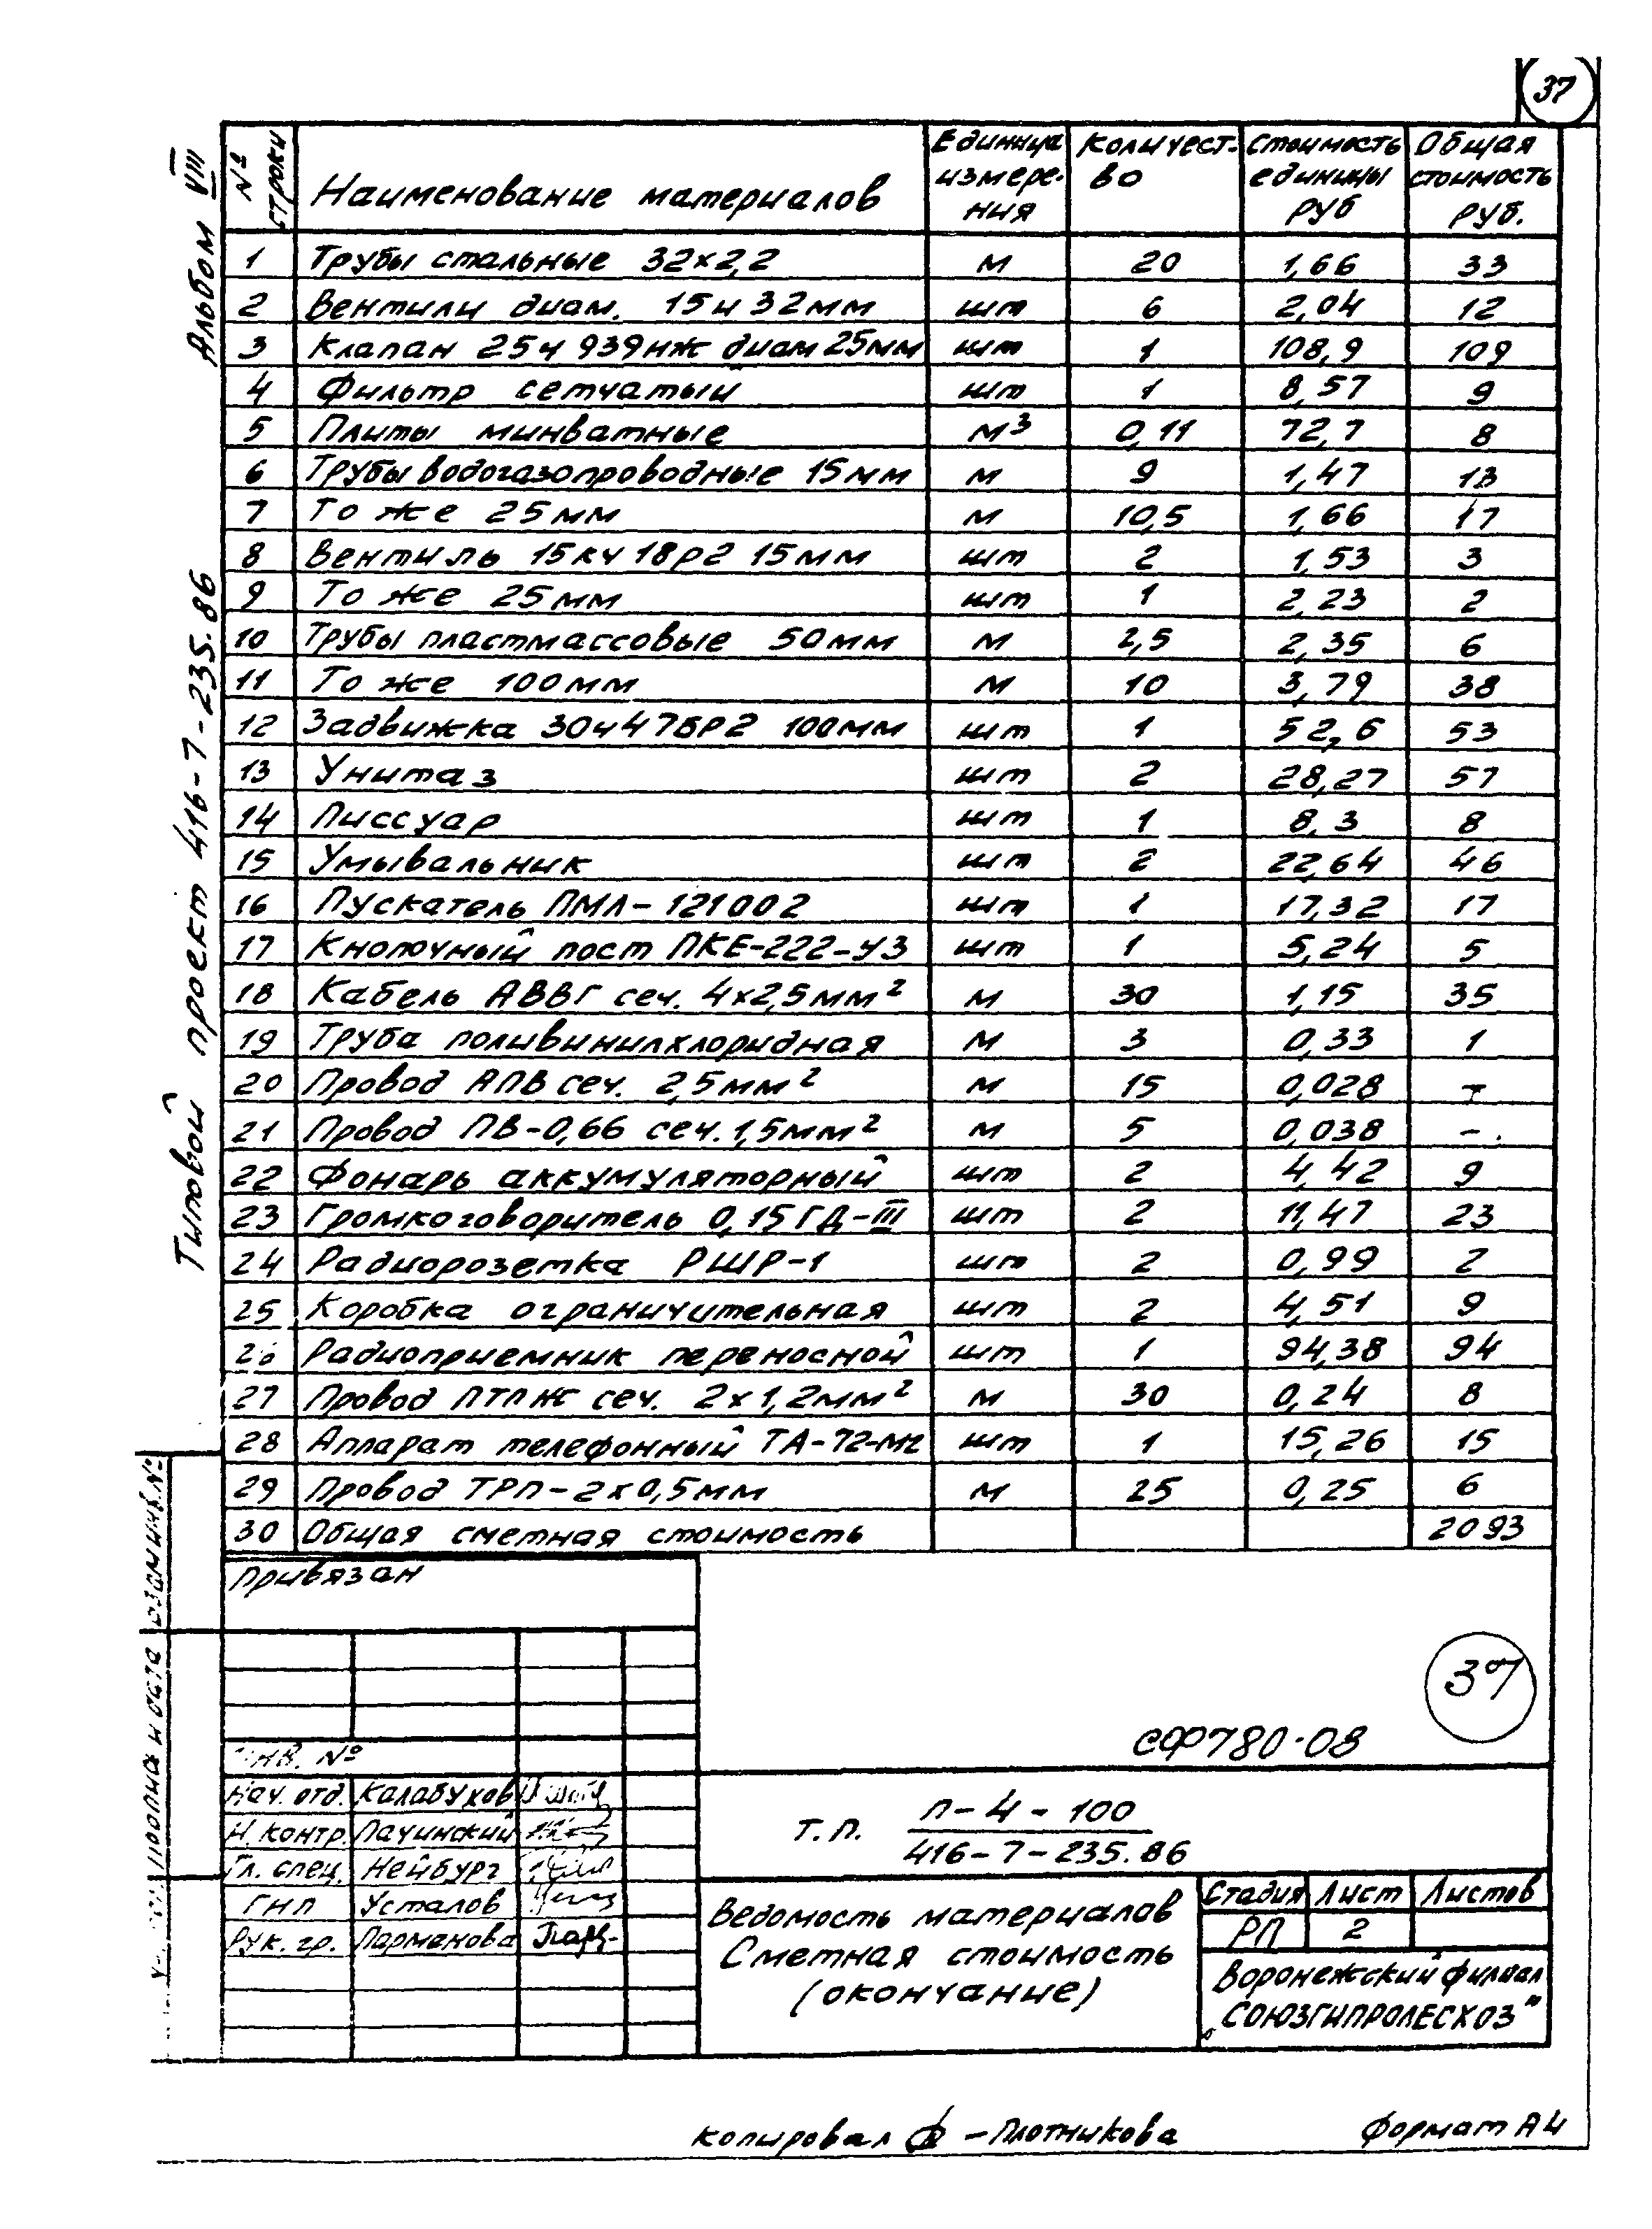 37
Альбом VIII
Типовой проект 416-7-235.86
№ строки | Наименование материалов | Единица измере-ния | Количест-во | Стоимость единицы руб | Общая стоимость руб.
1 Трубы стальные 32×2,2 м 20 1,66 33
2 Вентили диам. 15 и 32мм шт 6 2,04 12
3 Клапан 25ч 939нж диам 25мм шт 1 108,9 109
4 Фильтр сетчатый шт 1 8,57 9
5 Плиты минватные м³ 0,11 72,7 8
6 Трубы водогазопроводные 15мм м 9 1,47 13
7 То же 25мм м 10,5 1,66 17
8 Вентиль 15кч18р2 15мм шт 2 1,53 3
9 То же 25мм шт 1 2,23 2
10 Трубы пластмассовые 50мм м 2,5 2,35 6
11 То же 100мм м 10 3,79 38
12 Задвижка 30ч47БР2 100мм шт 1 52,6 53
13 Унитаз шт 2 28,27 57
14 Писсуар шт 1 8,3 8
15 Умывальник шт 2 22,64 46
16 Пускатель ПМЛ-121002 шт 1 17,32 17
17 Кнопочный пост ПКЕ-222-У3 шт 1 5,24 5
18 Кабель АВВГ сеч. 4×2,5мм² м 30 1,15 35
19 Труба поливинилхлоридная м 3 0,33 1
20 Провод АПВ сеч. 2,5мм² м 15 0,028 -
21 Провод ПВ-0,66 сеч. 1,5мм² м 5 0,038 -
22 Фонарь аккумуляторный шт 2 4,42 9
23 Громкоговоритель 0,15ГД-III шт 2 11,47 23
24 Радиорозетка РШР-1 шт 2 0,99 2
25 Коробка ограничительная шт 2 4,51 9
26 Радиоприемник переносной шт 1 94,38 94
27 Провод ПТПЖ сеч. 2×1,2мм² м 30 0,24 8
28 Аппарат телефонный ТА-72-М2 шт 1 15,26 15
29 Провод ТРП-2×0,5мм м 25 0,25 6
30 Общая сметная стоимость 2093
Привязан
37
СФ780-08
Инв. №
Нач. отд. Калабухов
Н. контр. Пачинский
Гл. спец. Нейбург
ГИП Усталов
Рук. гр. Парманова
Т.П. П-4-100
416-7-235.86
Ведомость материалов
Сметная стоимость
(окончание)
Стадия Лист Листов
РП 2
Воронежский филиал
„СОЮЗГИПРОЛЕСХОЗ"
Подпись и дата
Взам инв. №
Копировал - Плотникова
Формат А4